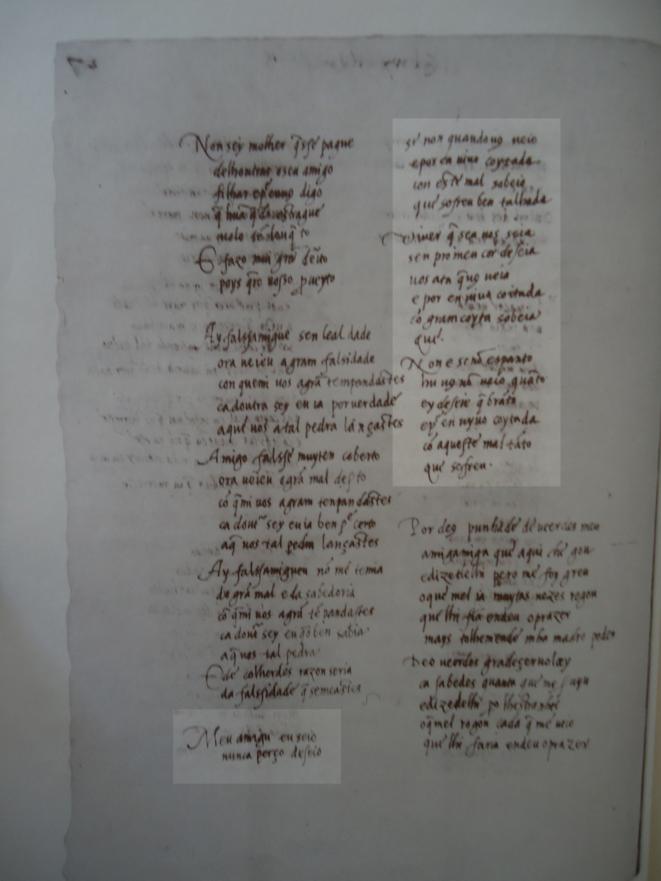 Non sey molher q̃ sse pague
delhoutras o seu amigo
filhar epeuuno digo
q̃ hũa q̃
E faço moi grã deito
poys q̃ro uosso preyto
Ay falssamigue sen leal dade
ora ueieu a gram falsidade
con quemi uos agrã tempandastes
ca doutra sey eu ia por uerdade
aque uos a tal pedra lançastes
Amigo falsse muyten coberto
ora ueieu agrã mal deserto
cõ q̃mi uos agram tenpandastes
ca dout sey eu ia ben p certo
a q̃ uos tal pedra lançastes
Ay falssamigueu nõ me temia
do grã mal e da sabedoria
cõ q̃mi uos agrã tẽpandastes
ca dout sey eu ben sabia
a q̃ uos tal pedra
E de colherdes razon seria
da falssidade q̃ semeastes
Meu amigu eu seio
nunca perço deseio
se non quando uo ueio
e por en uiuo coytada
con este mal sobeio
que sofreu ben talhada
Viuer q̃ sen uos seia
sen pro meu cor deseia
uos ata q̃ uos ueia
e por en uiuo coitada
cõ gram coyta sobeia
que
Non e senõ espanto
hu uo nõ ueio quãto
ey deseie q̃ brãto
e por en uyuo coytada
cõ aqueste mal tãto
que sofreu
Por deo punhade de ueerdes meu
amigamiga que aqui chegou
e dizedelhi pero me foy greu
o que mel ia muytas uezes rogou
que lhi faria endeu o prazer
mays tolhemende mha madre poder
De o ueerdes gradeçeruoloey
ca sabedes quanta que me
e dizedelhi
o q̃ mel rogou cada q̃ me ueo
que lhi faria endeu o prazer